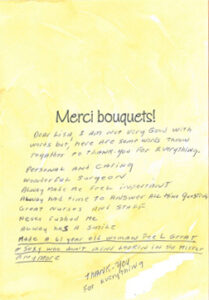 Merci bouquets!
Dear Lisa, I am not very good with
words but, here are some words thrown
together to thank-you for everything.
Personal and caring
Wonderful surgeon
Always make me feel important
Always had time to answer all the questions
Great nurses and staff
Never rushed me
Always has a smile
Made a 61 year old woman feel great
& sexy who don't mind lookin in the mirror
anymore
Thank-you
for everything